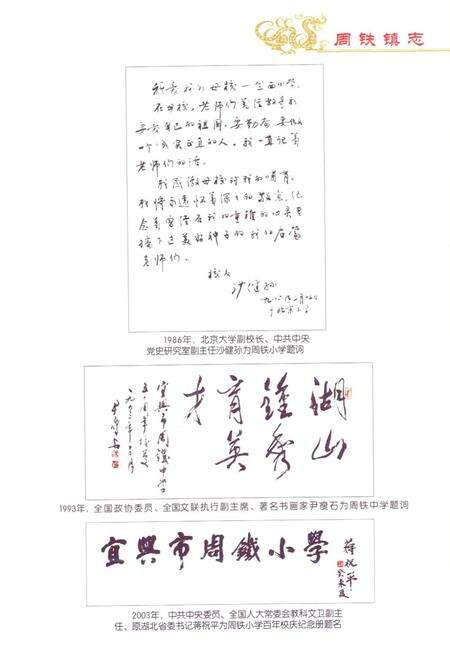 周铁镇志
我爱我的母校一竺西小学。
在母校,老师们关注教导我
要爱自己的祖国,要勤奋,要做
一个诚实正直的人。我一直记着
老师们的话。
我感激母校对我的哺育。
我将永远怀着深深的敬意,纪
念着曾经在我的童稚的心灵里
播下过美好种子的我的启蒙
老师们。
校友
沙健孙
1986年,北京大学副校长、中共中央
党史研究室副主任沙健孙为周铁小学题词
湖山
鍾秀
育英
才
宜興市周鐵中學
五十周年校慶
一九九三年十月
1993年,全国政协委员、全国文联执行副主席、著名书画家尹瘦石为周铁中学题词
宜興市周鐵小學
蒋祝平
癸未夏
2003年,中共中央委员、全国人大常委会教科文卫副主
任、原湖北省委书记蒋祝平为周铁小学百年校庆纪念册题名